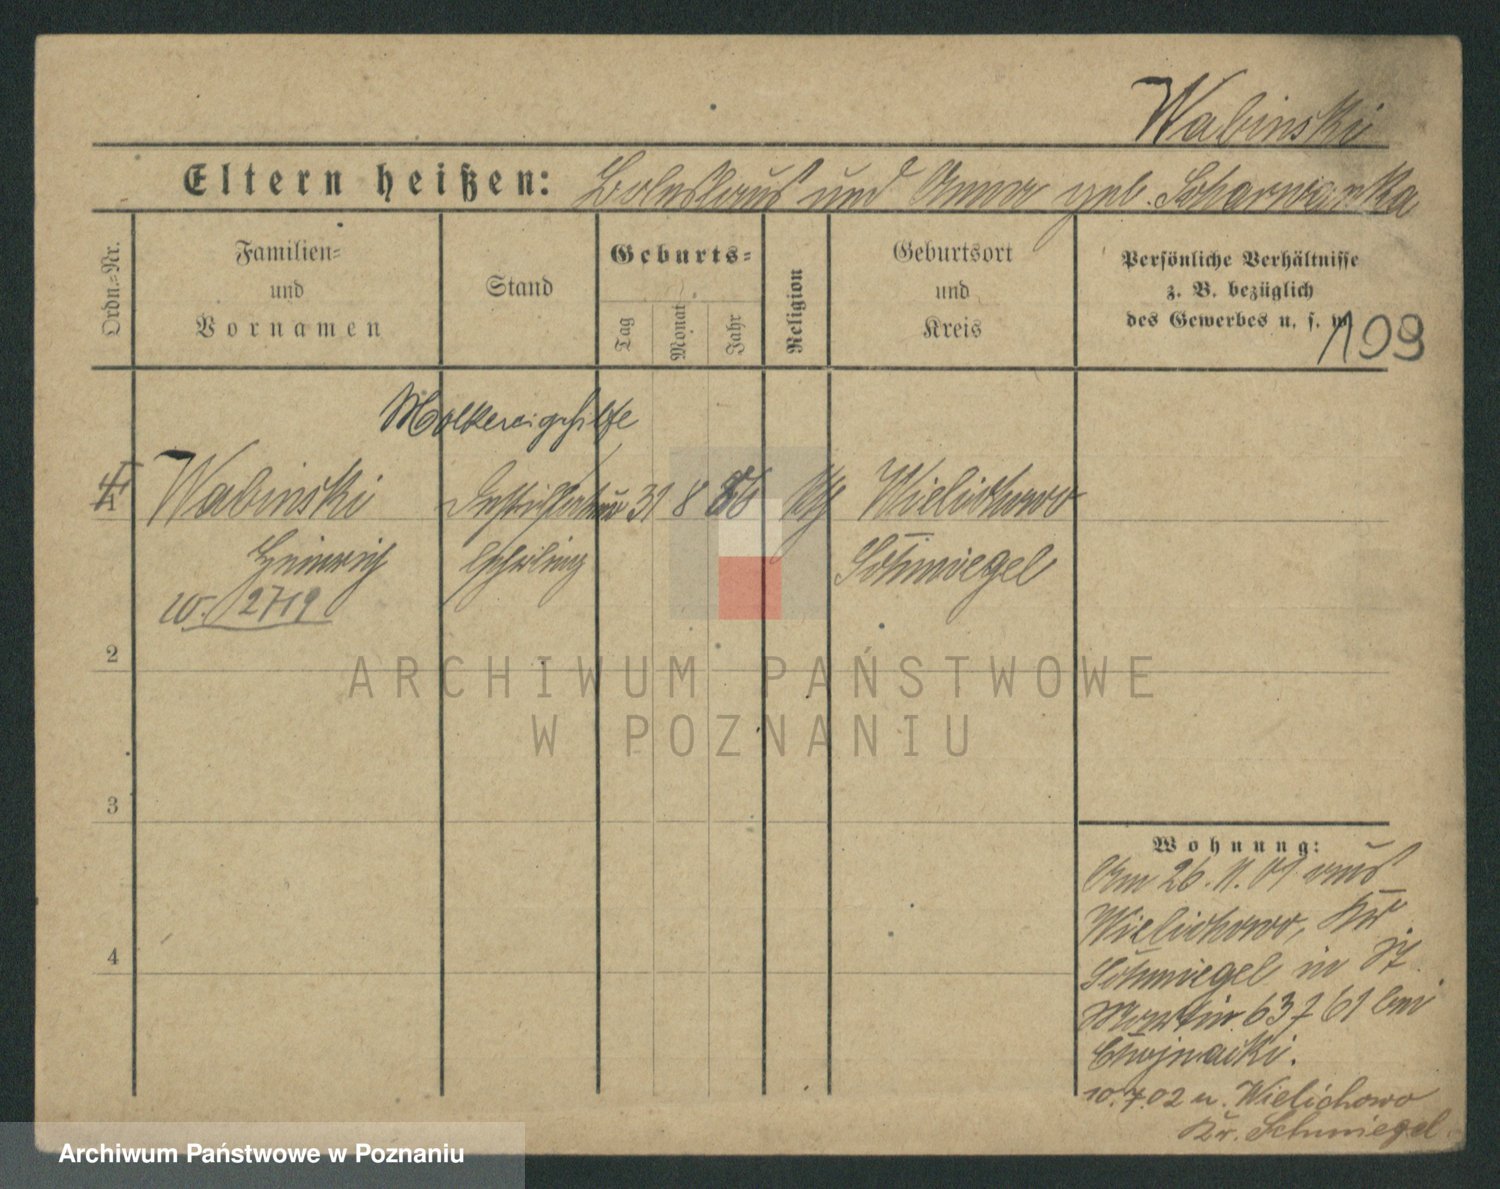 Wabinski
Eltern heißen: Boleslaus und Anna geb. Scharwanka
Ordn.=Nr.
Familien=
und
Vornamen
Stand
Geburts=
Tag
Monat
Jahr
Religion
Geburtsort
und
Kreis
Persönliche Verhältnisse
z. B. bezüglich
des Gewerbes u. s. w.
109
Molkereigehilfe
Wabinski 31 8 86 Wielichowo
Heinrich Lehrling Schmiegel
w. 2719
2
3
4
Wohnung:
Am 26. 11. 01 aus
Wielichowo, Kr
Schmiegel in St
Martin 63 bei
Chojnacki.
10.7.02 n. Wielichowo
Kr. Schmiegel
ARCHIWUM PAŃSTWOWE
W POZNANIU
Archiwum Państwowe w Poznaniu